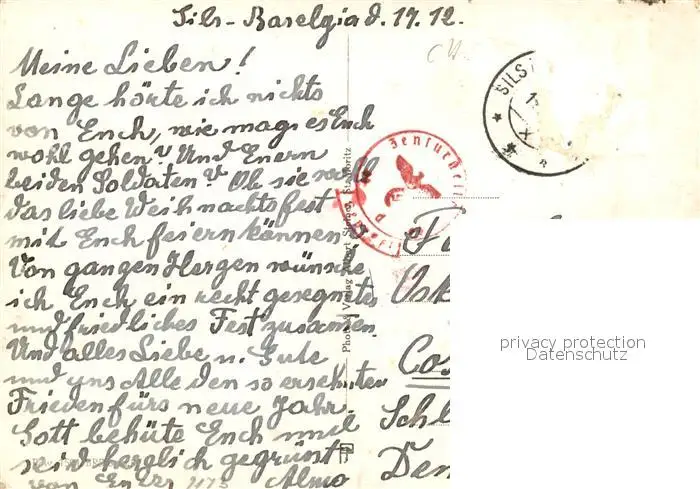 Sils-Baselgia d. 17. 12.
Meine Lieben!
Lange hörte ich nichts
von Euch, wie mag es Euch
wohl gehen? Und Euern
beiden Soldaten? Ob sie wohl
das liebe Weihnachtsfest
mit Euch feiern können?
Von ganzen Herzen wünsche
ich Euch ein recht gesegnetes
und friedliches Fest zusammen.
Und alles Liebe u. Gute
und uns Alle den so ersehnten
Frieden fürs neue Jahr.
Gott behüte Euch und
seid herzlich gegrüsst
von Eurer
SILS
Photo & Verlag Albert Steiner, St. Moritz
privacy protection
Datenschutz